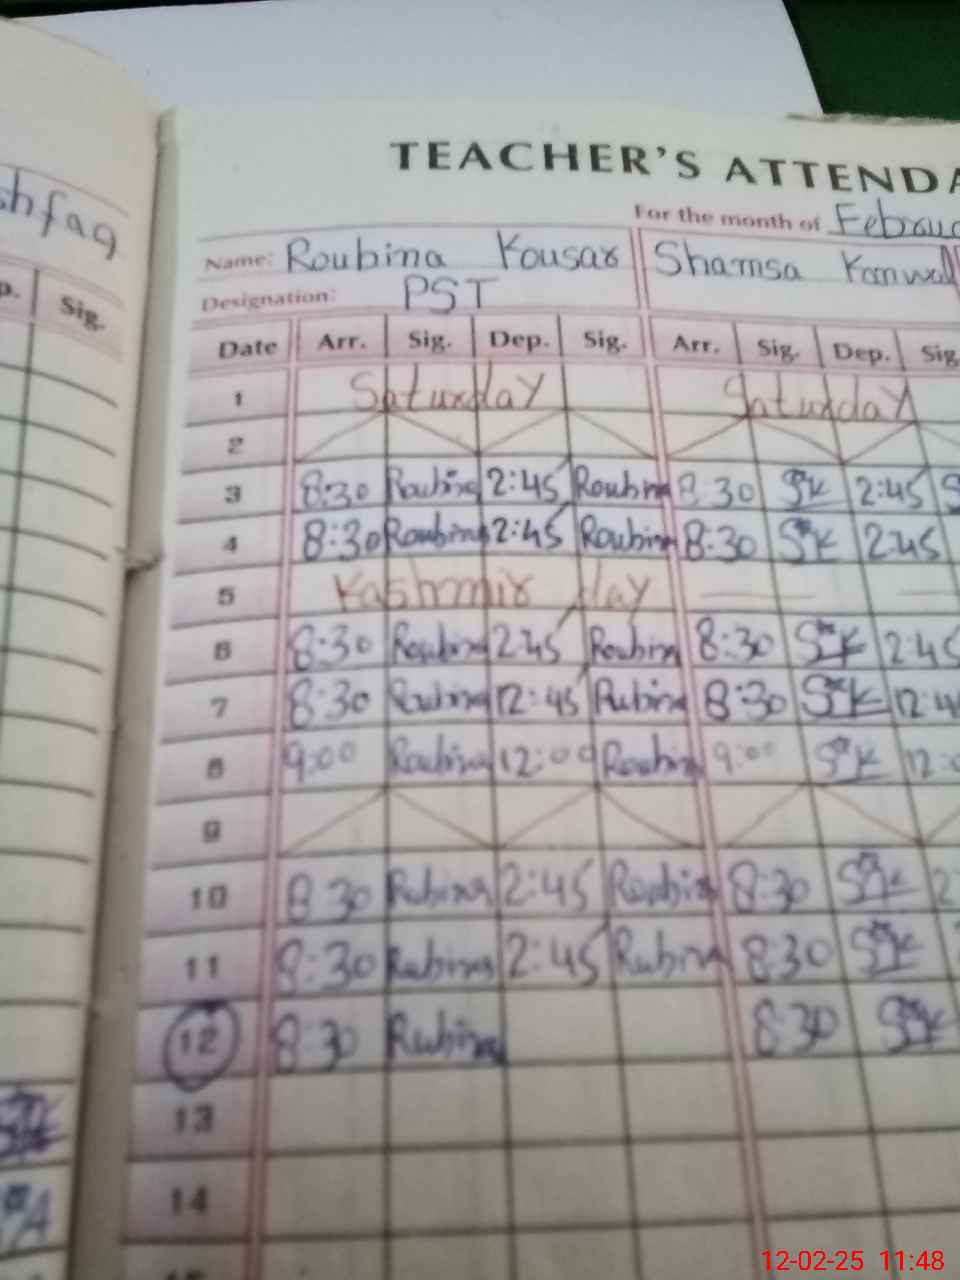 shfaq
p. Sig.
TEACHER'S ATTENDA
For the month of Februa
Name: Roubina Kousar Shamsa Kanwal
Designation: PST
Date Arr. Sig. Dep. Sig. Arr. Sig. Dep. Sig
1 Saturday Saturday
2
3 8:30 Roubina 2:45 Roubina 8:30 SK 2:45 S
4 8:30 Roubina 2:45 Roubina 8:30 SK 2:45
5 Kashmir day
6 8:30 Roubina 2:45 Roubina 8:30 SK 2:45
7 8:30 Roubina 12:45 Rubina 8:30 SK 12:4
8 9:00 Roubina 12:00 Roubina 9:00 SK 12:0
9
10 8:30 Rubina 2:45 Roubina 8:30 SK 2
11 8:30 Rubina 2:45 Rubina 8:30 SK
12 8:30 Rubina 8:30 SK
13
14
12-02-25 11:48